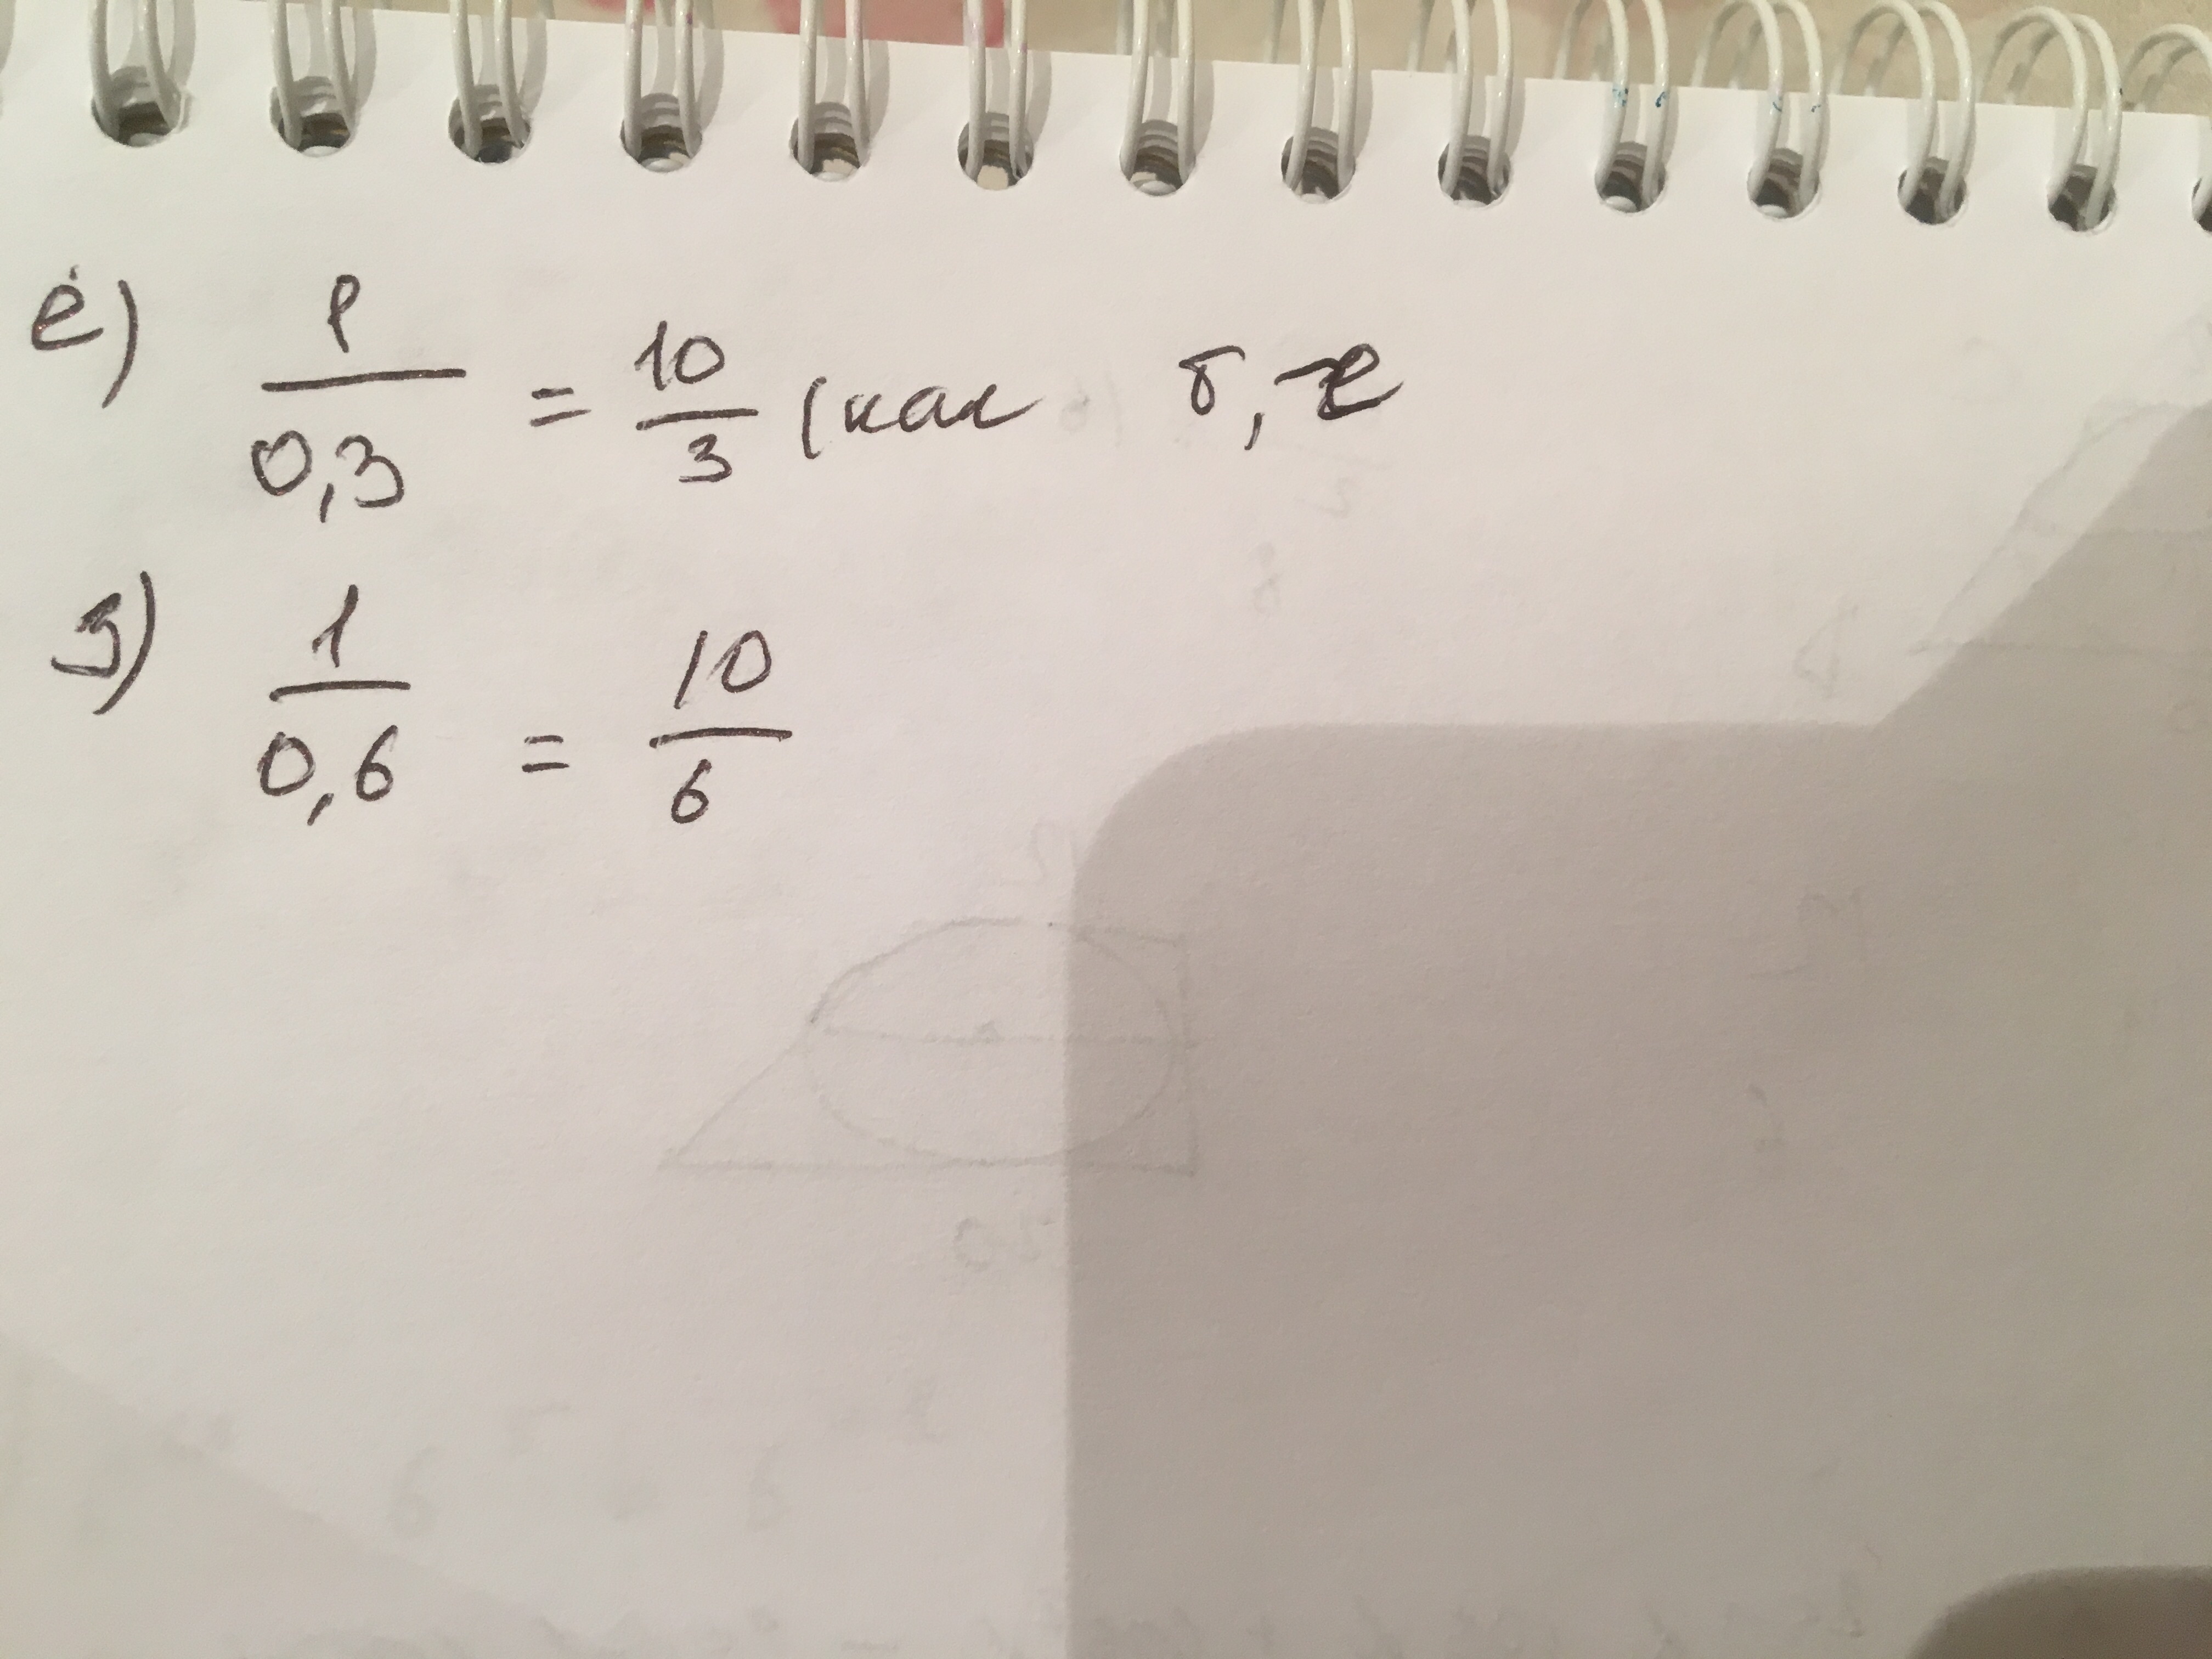 ё) 1/0,3 = 10/3 (как б, г
з) 1/0,6 = 10/6